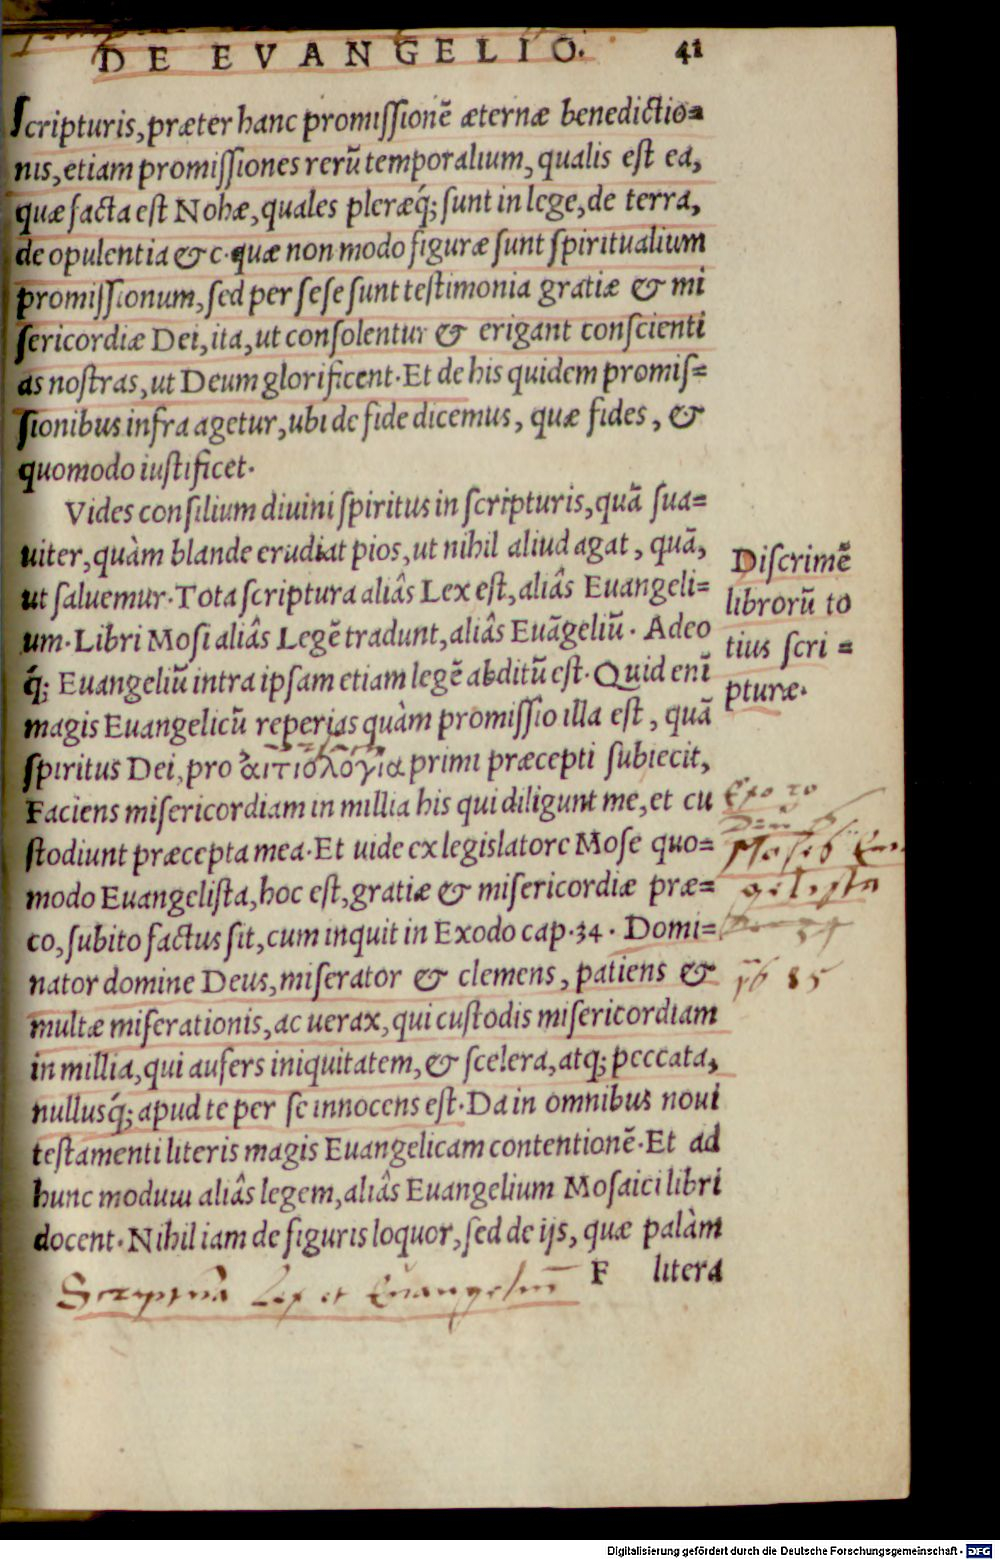 DE EVANGELIO. 41
Scripturis, præter hanc promissionẽ æternæ benedictio=
nis, etiam promissiones rerũ temporalium, qualis est ea,
quæ facta est Nohæ, quales pleræq́; sunt in lege, de terra,
de opulentia & c. quæ non modo figuræ sunt spiritualium
promissionum, sed per sese sunt testimonia gratiæ & mi
sericordiæ Dei, ita, ut consolentur & erigant conscienti
as nostras, ut Deum glorificent. Et de his quidem promis=
sionibus infra agetur, ubi de fide dicemus, quæ fides, &
quomodo iustificet.
Vides consilium diuini spiritus in scripturis, quã sua=
uiter, quàm blande erudiat pios, ut nihil aliud agat, quã,
ut saluemur. Tota scriptura aliâs Lex est, aliâs Euangeli=
um. Libri Mosi aliâs Legẽ tradunt, aliâs Euãgeliũ. Adeo
q́; Euangeliũ intra ipsam etiam legẽ abditũ est. Quid enĩ
magis Euangelicũ reperias quàm promissio illa est, quã
spiritus Dei, pro αἰτιολογία primi præcepti subiecit,
Faciens misericordiam in millia his qui diligunt me, et cu
stodiunt præcepta mea. Et uide ex legislatore Mose quo=
modo Euangelista, hoc est, gratiæ & misericordiæ præ=
co, subito factus sit, cum inquit in Exodo cap. 34. Domi=
nator domine Deus, miserator & clemens, patiens &
multæ miserationis, ac uerax, qui custodis misericordiam
in millia, qui aufers iniquitatem, & scelera, atq; peccata,
nullusq́; apud te per se innocens est. Da in omnibus noui
testamenti literis magis Euangelicam contentionẽ. Et ad
hunc modum aliâs legem, aliâs Euangelium Mosaici libri
docent. Nihil iam de figuris loquor, sed de ijs, quæ palàm
F litera
Discrimẽ
librorũ to
tius scri=
pturæ.
Exo 20
Moses Eua
gelista
34
85
Scriptura Lex et Euangeliũ
Digitalisierung gefördert durch die Deutsche Forschungsgemeinschaft - DFG